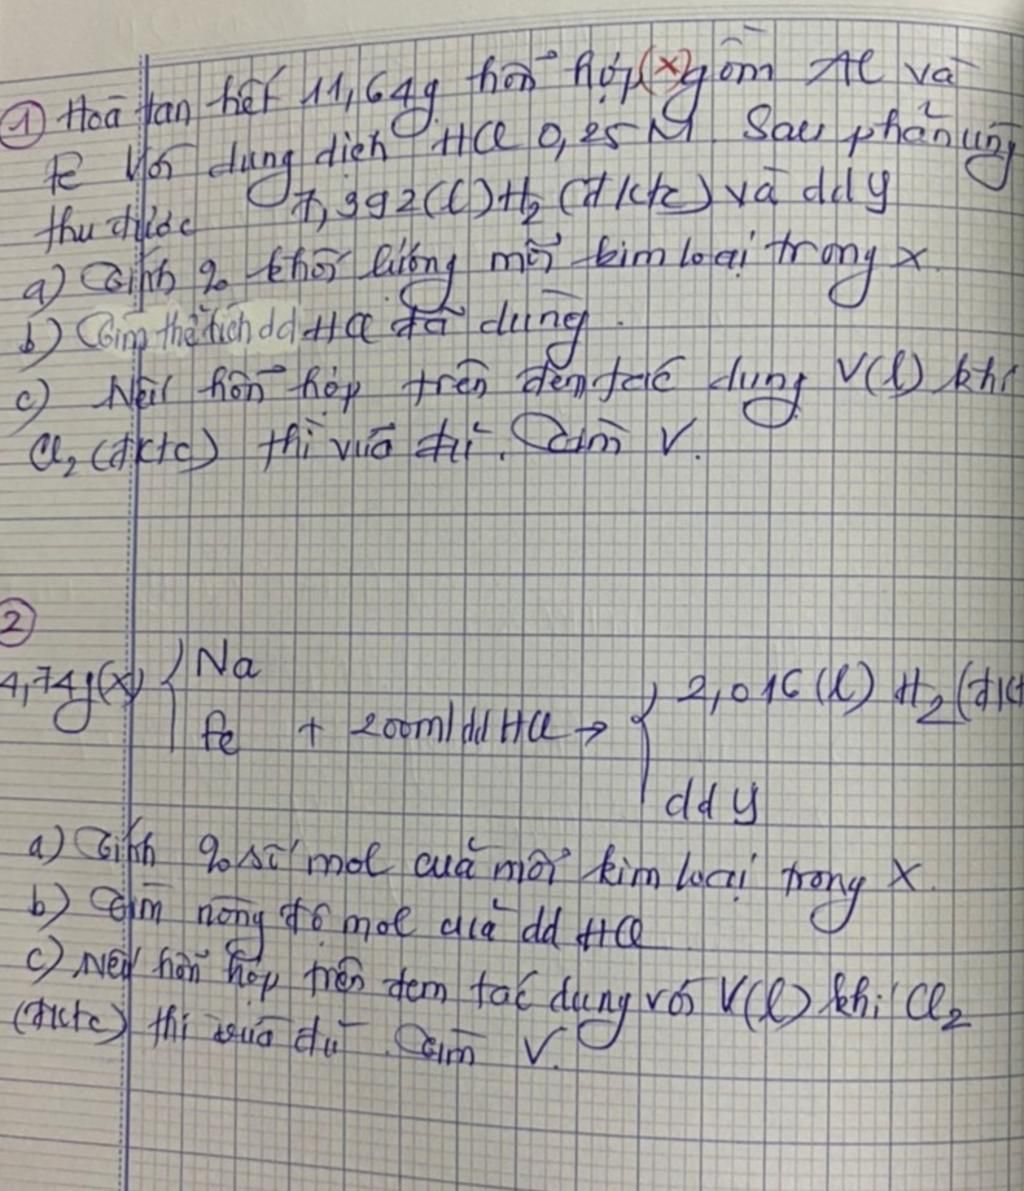 ① Hoà tan hết 11,64g hỗn hợp (X) gồm Al và
Fe Với dung dịch HCl 0,25M. Sau phản ứng
thu được 7,392(l) H₂ (đktc) và dd y
a) Tính % khối lượng mỗi kim loại trong X.
b) Tìm thể tích dd HCl đã dùng.
c) Nếu hỗn hợp trên đem tác dụng V(l) khí
Cl₂ (đktc) thì vừa đủ. Tìm V.
②
4,74g(X) { Na
Fe + 200ml dd HCl → { 2,016 (l) H₂ (đkt
dd y
a) Tính % số mol của mỗi kim loại trong X.
b) Tìm nồng độ mol của dd HCl
c) Nếu hỗn hợp trên đem tác dụng với V(l) khí Cl₂
(đktc) thì vừa đủ. Tìm V.